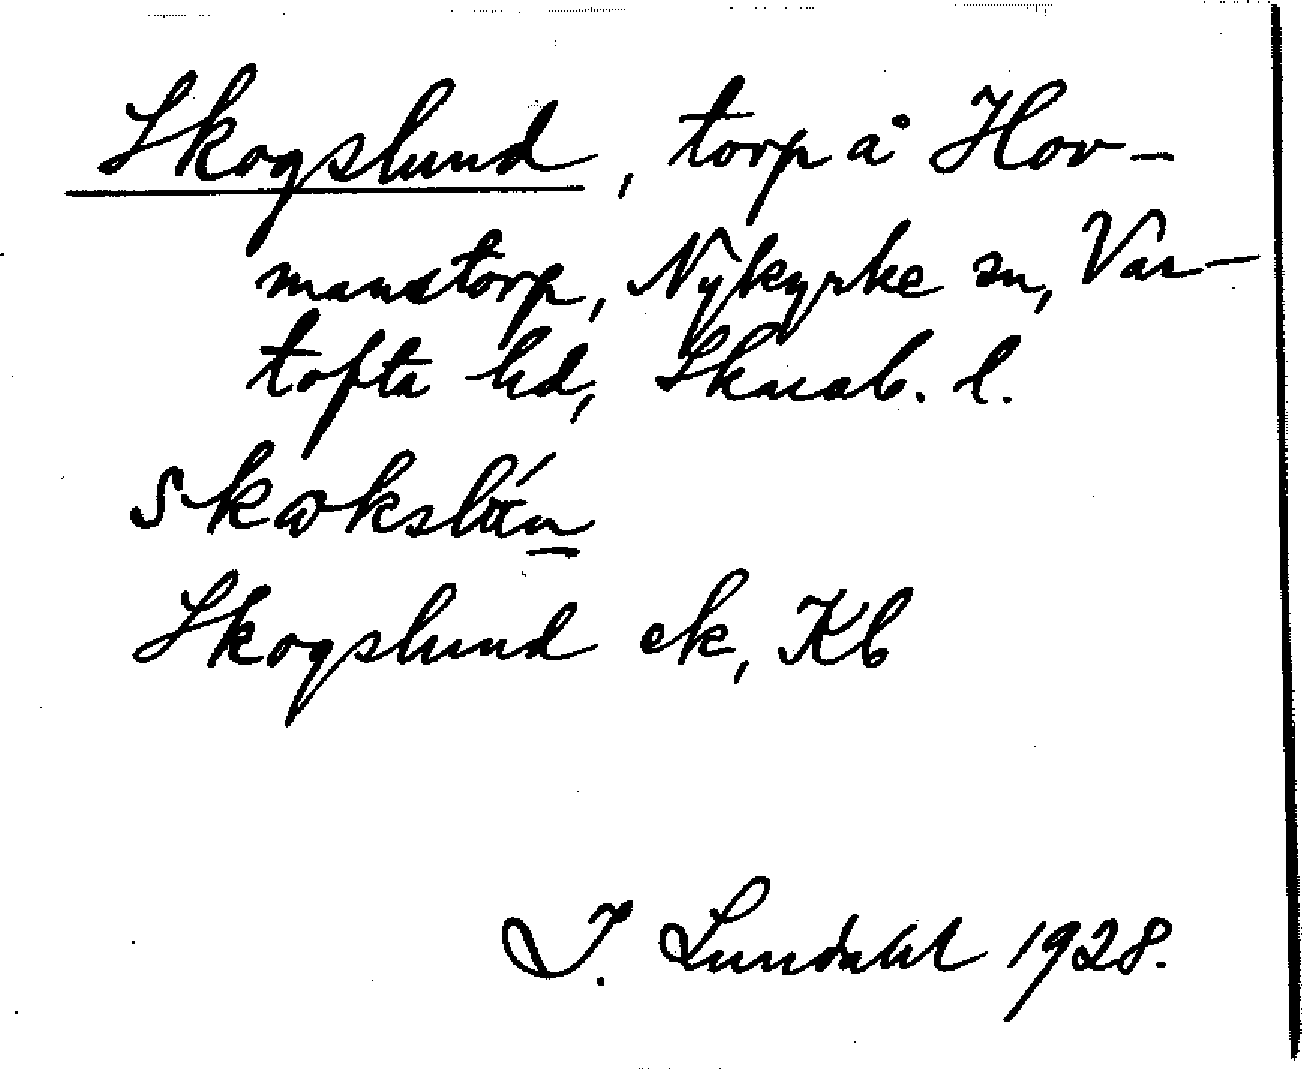 Skogslund, torp å Hov-
manstorp, Nykyrke sn, Var-
tofta hd, Skarab. l.
Skogslund ek, Kb
I. Lundahl 1928.